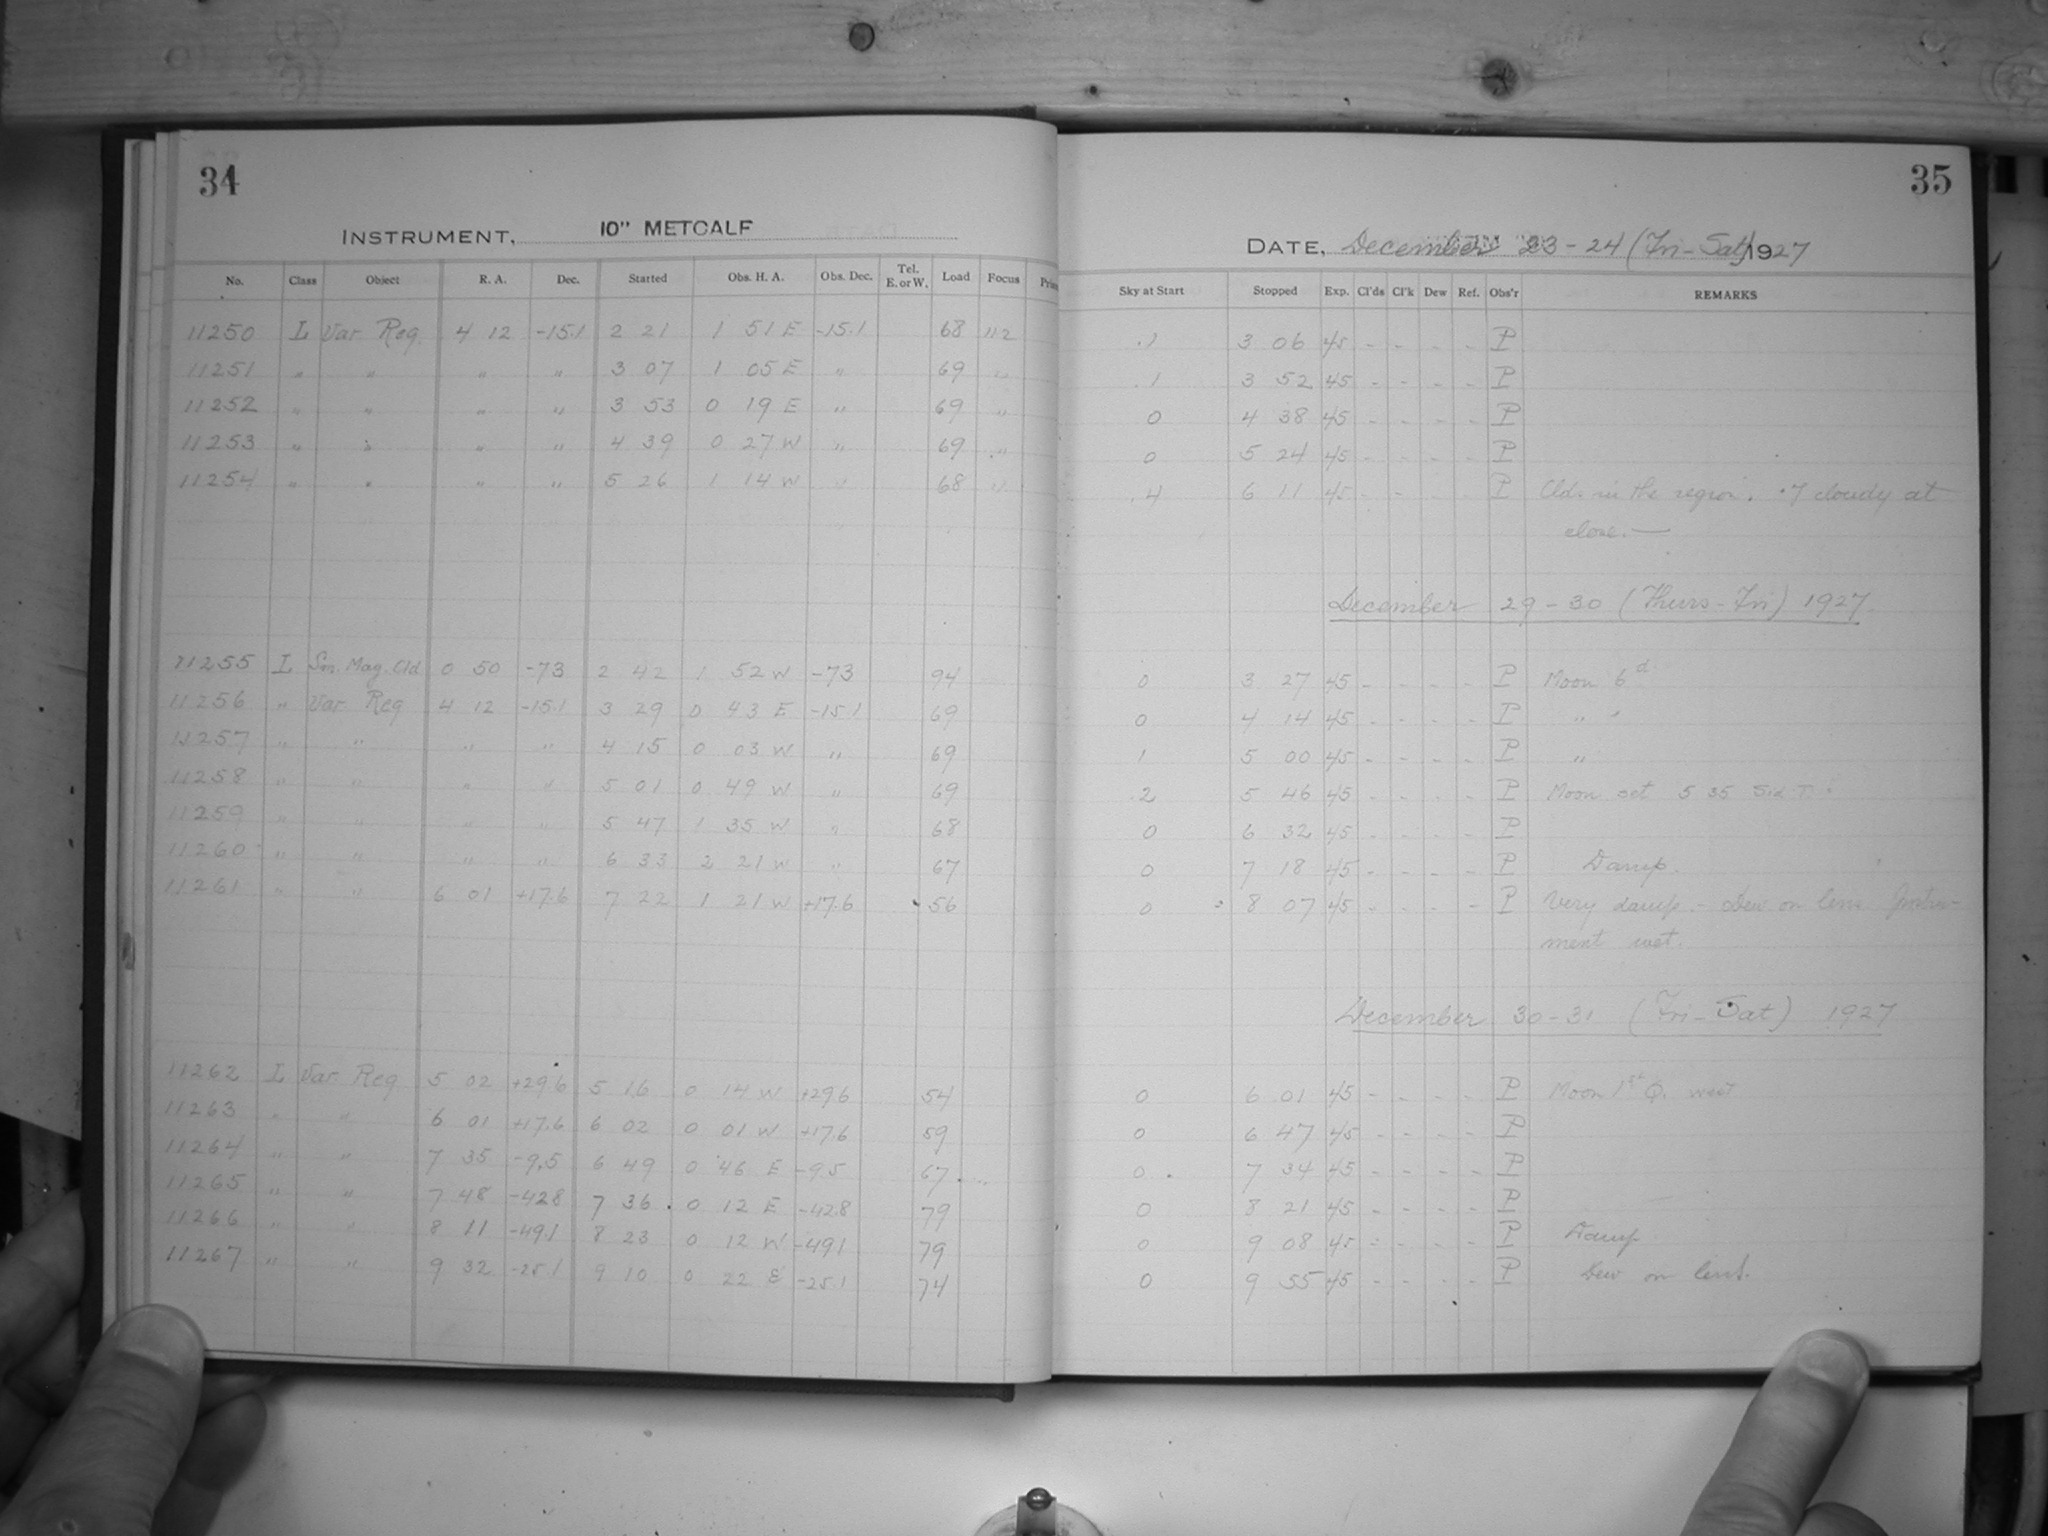 34
INSTRUMENT, 10" METCALF
No. Class Object R. A. Dec. Started Obs. H. A. Obs. Dec. Tel. E. or W. Load Focus
11250 L Var Reg. 4 12 -15.1 2 21 1 51 E -15.1 68 112
11251 " " " " 3 07 1 05 E " 69 "
11252 " " " " 3 53 0 19 E " 69 "
11253 " " " " 4 39 0 27 W " 69 "
11254 " " " " 5 26 1 14 W " 68 "
11255 L Sm. Mag. Cld 0 50 -73 2 42 1 52 W -73 94
11256 " Var Reg 4 12 -15.1 3 29 0 43 E -15.1 69
11257 " " " " 4 15 0 03 W " 69
11258 " " " " 5 01 0 49 W " 69
11259 " " " " 5 47 1 35 W " 68
11260 " " " " 6 33 2 21 W " 67
11261 " " 6 01 +17.6 7 22 1 21 W +17.6 56
11262 L Var Reg 5 02 +29.6 5 16 0 14 W +29.6 54
11263 " " 6 01 +17.6 6 02 0 01 W +17.6 59
11264 " " 7 35 -9.5 6 49 0 46 E -9.5 67
11265 " " 7 48 -42.8 7 36 0 12 E -42.8 79
11266 " " 8 11 -49.1 8 23 0 12 W -49.1 79
11267 " " 9 32 -25.1 9 10 0 22 E -25.1 74
35
DATE, December 23-24 (Fri-Sat) 1927
Sky at Start Stopped Exp. Cl'ds Cl'k Dew Ref. Obs'r REMARKS
.1 3 06 45 - - - - P
.1 3 52 45 - - - - P
0 4 38 45 - - - - P
0 5 24 45 - - - - P
.4 6 11 45 - - - - P Cld. in the region. .7 cloudy at
close.—
December 29-30 (Thurs-Fri) 1927
0 3 27 45 - - - - P Moon 6d
0 4 14 45 - - - - P " "
1 5 00 45 - - - - P "
.2 5 46 45 - - - - P Moon set 5 35 Sid T.
0 6 32 45 - - - - P
0 7 18 45 - - - - P Damp.
0 8 07 45 - - - - P Very damp - Dew on lens Instru-
ment wet.
December 30-31 (Fri-Sat) 1927
0 6 01 45 - - - - P Moon 1st Q. west
0 6 47 45 - - - - P
0 7 34 45 - - - - P
0 8 21 45 - - - - P
0 9 08 45 - - - - P Damp
0 9 55 45 - - - - P Dew on lens.